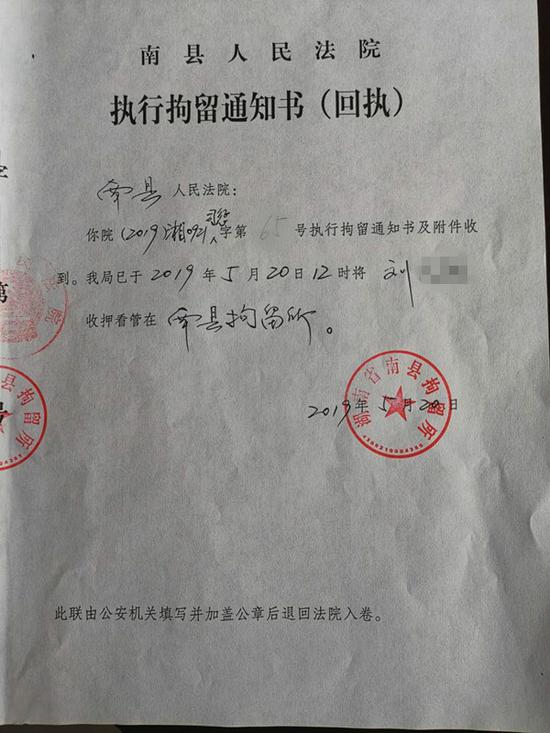 南县人民法院
执行拘留通知书（回执）
南县人民法院：
你院(2019)湘0921 字第65号执行拘留通知书及附件收
到。我局已于2019年5月20日12时将刘
收押看管在南县拘留所。
湖南省南县拘留所
2019年5月20日
此联由公安机关填写并加盖公章后退回法院入卷。
第
号